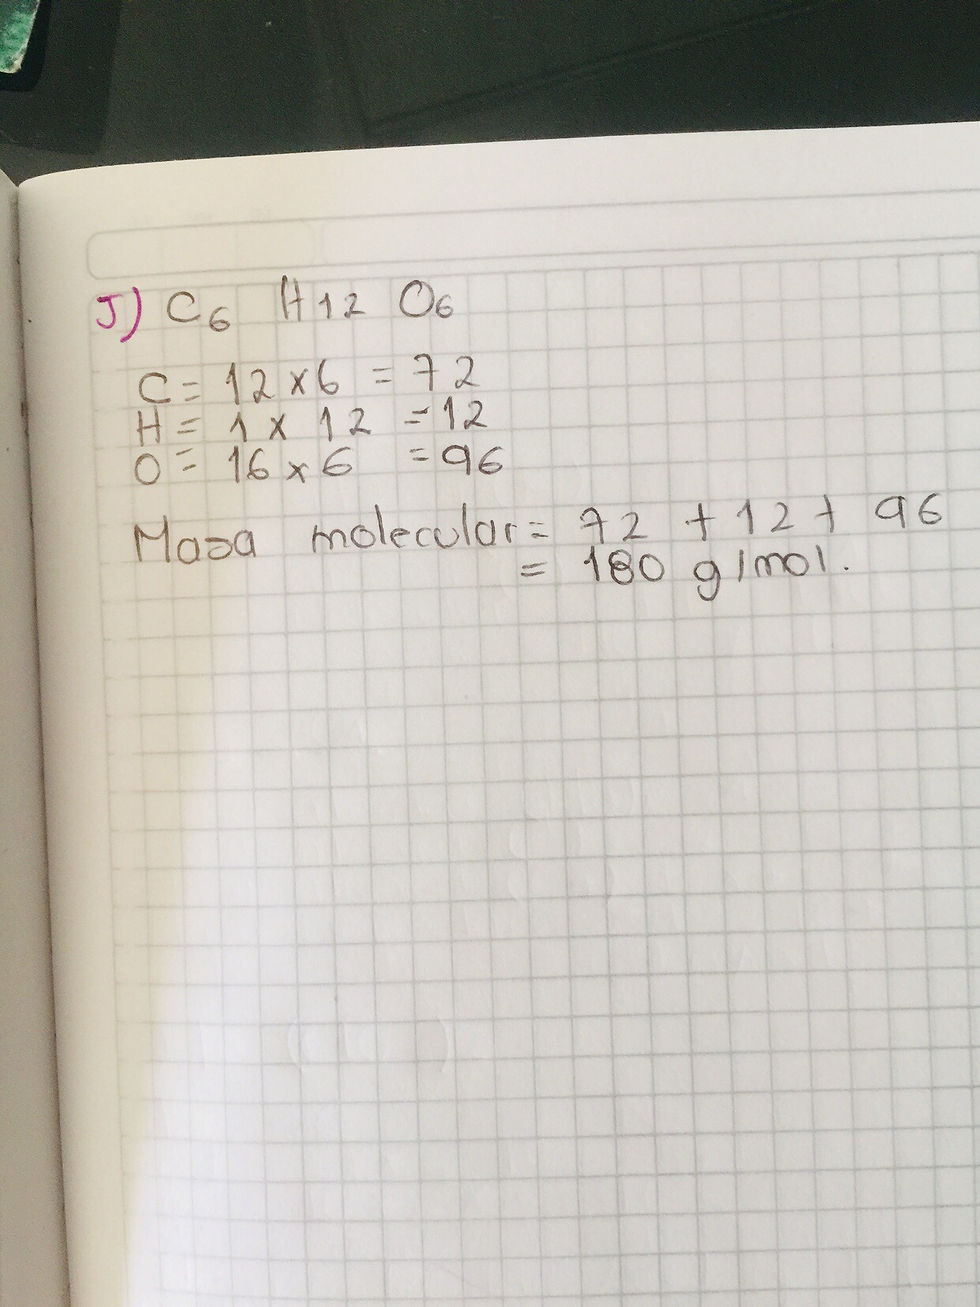 J) C6 H12 O6
C = 12 x 6 = 72
H = 1 x 12 = 12
O = 16 x 6 = 96
Masa molecular = 72 + 12 + 96
= 180 g/mol.